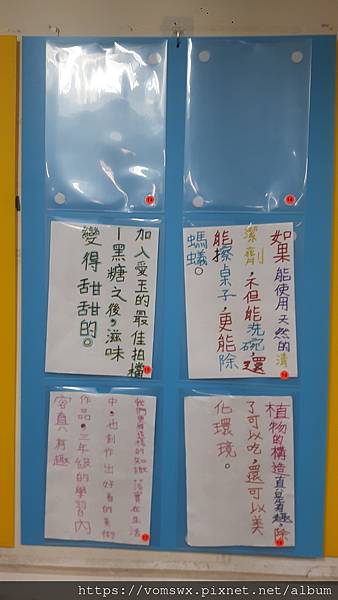 如果能使用天然的清
潔劑，不但能洗碗，還
能擦桌子，更能除
螞蟻。
加入愛玉的最佳拍檔
—黑糖之後，滋味
變得甜甜的。
植物的構造真是有趣，除
了可以吃，還可以美
化環境。
我們的知識落實在生活
中，也創作出好看的美術
作品，三年級的學習內
容真有趣
https://vomswx.pixnet.net/album